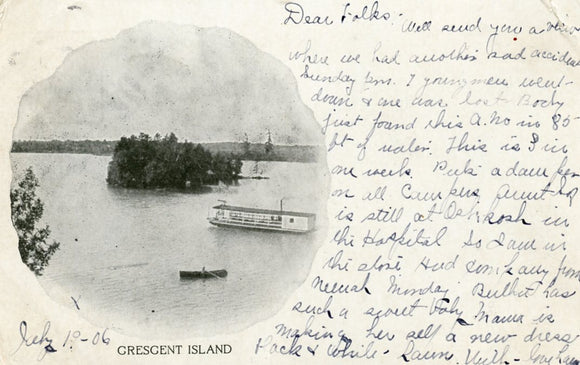 Dear Folks:
Will send you a view
where we had another sad accident
Sunday pm. 7 young men went
down & one was lost Body
just found this A.M in 85
ft of water. This is 3 in
one week. Puts a damper
on all Campers. Aunt
is still at Oshkosh in
the Hospital So I am in
the store. Had company from
Neenah Monday.
such a sweet baby Mama is
making her self a new dress
Black & White - Lawn. With - love
July 1906
CRESCENT ISLAND